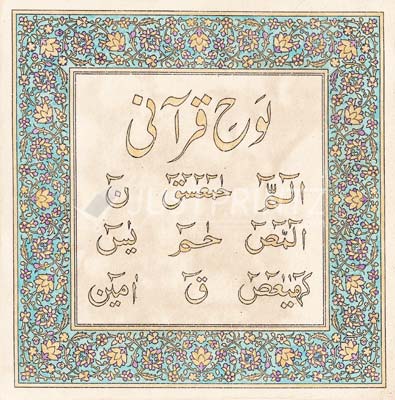 لوح قرآنی
الٓمّٓ حٰمٓعٓسٓقٓ نٓ
الٓمٓصٓ حٰمٓ یٰسٓ
کٓهٰیٰعٓصٓ قٓ اٰمین